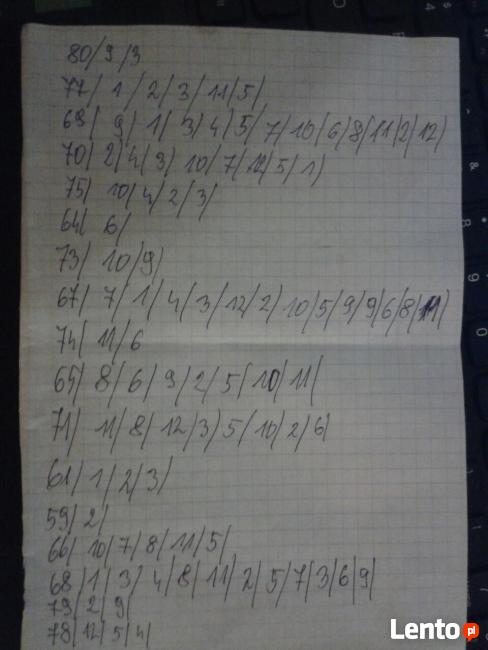 80/9/3
77/ 1 / 2 / 3 / 11 / 5 /
69/ 9/ 1/ 3/ 4/ 5/ 7/ 10/ 6/ 8/ 11/ 2/ 12/
70/ 2/ 4/ 3/ 10/ 7/ 12/ 5/ 1/
75/ 10/ 4/ 2/ 3/
64/ 6/
73/ 10/ 9/
67/ 7/ 1/ 4/ 3/ 12/ 2/ 10/ 5/ 9/ 9/ 6/ 8/ 11/
74/ 11/ 6
65/ 8/ 6/ 9/ 2/ 5/ 10/ 11/
71/ 11/ 8/ 12/ 3/ 5/ 10/ 2/ 6/
61/ 1/ 2/ 3/
59/ 2/
66/ 10/ 7/ 8/ 11/ 5/
68/ 1/ 3/ 4/ 8/ 11/ 2/ 5/ 7/ 3/ 6/ 9/
79/ 2/ 9/
78/ 12/ 5/ 4/
Lento pl